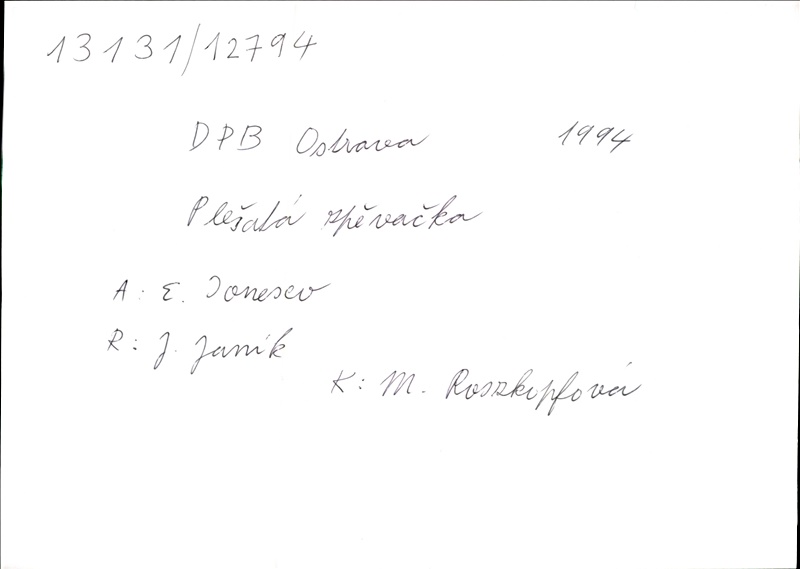 13131/12794
DPB Ostrava 1994
Plešatá zpěvačka
A: E. Ionesco
R: J. Janík
K: M. Roszkopfová